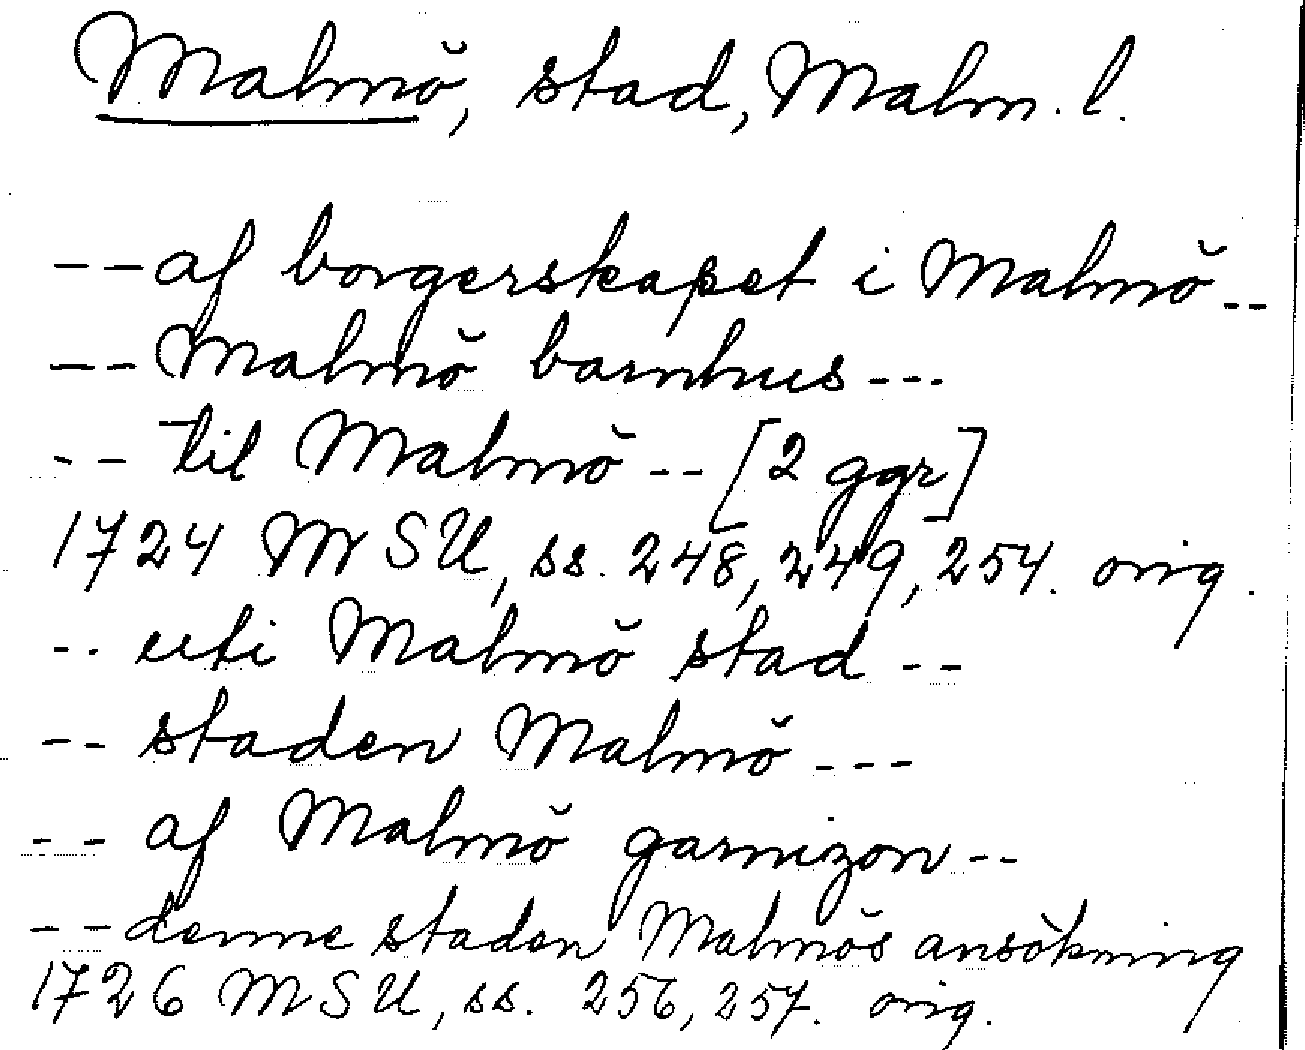 Malmö, stad, Malm. l.
-- af borgerskapet i Malmö --
-- Malmö barnhus ---
-- til Malmö -- [2 ggr]
1724 MSU, ss. 248, 249, 254. orig.
-- uti Malmö stad --
-- staden Malmö ---
-- af Malmö garnizon --
-- denne staden Malmös ansökning
1726 MSU, ss. 256, 257. orig.